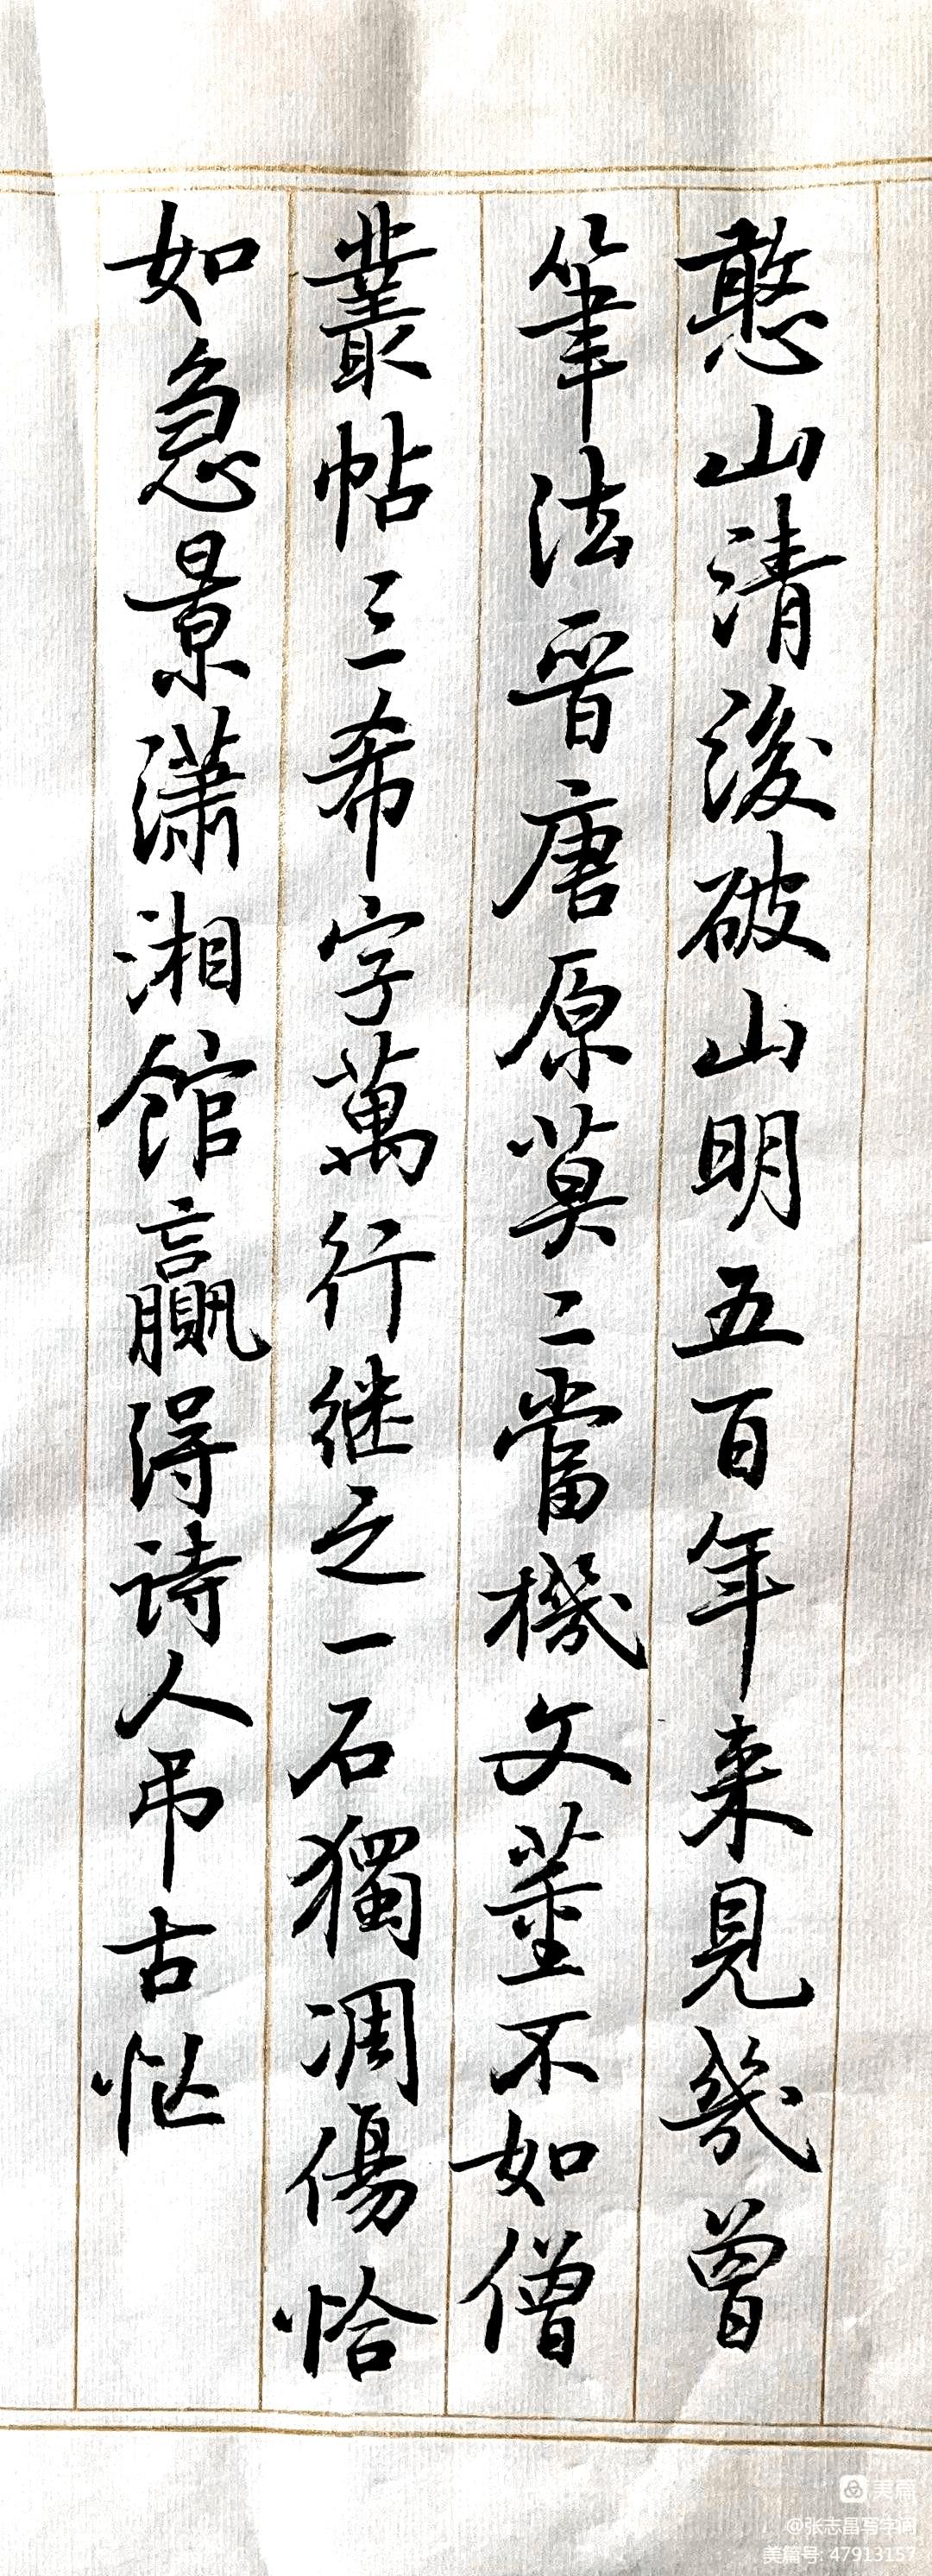 憨山清後破山明五百年来見幾曾
筆法晋唐原莫二當機文董不如僧
叢帖三希字萬行继之一石獨凋傷恰
如急景瀟湘館贏得诗人弔古忙
美篇
@张志昌写字间
美篇号: 47913157